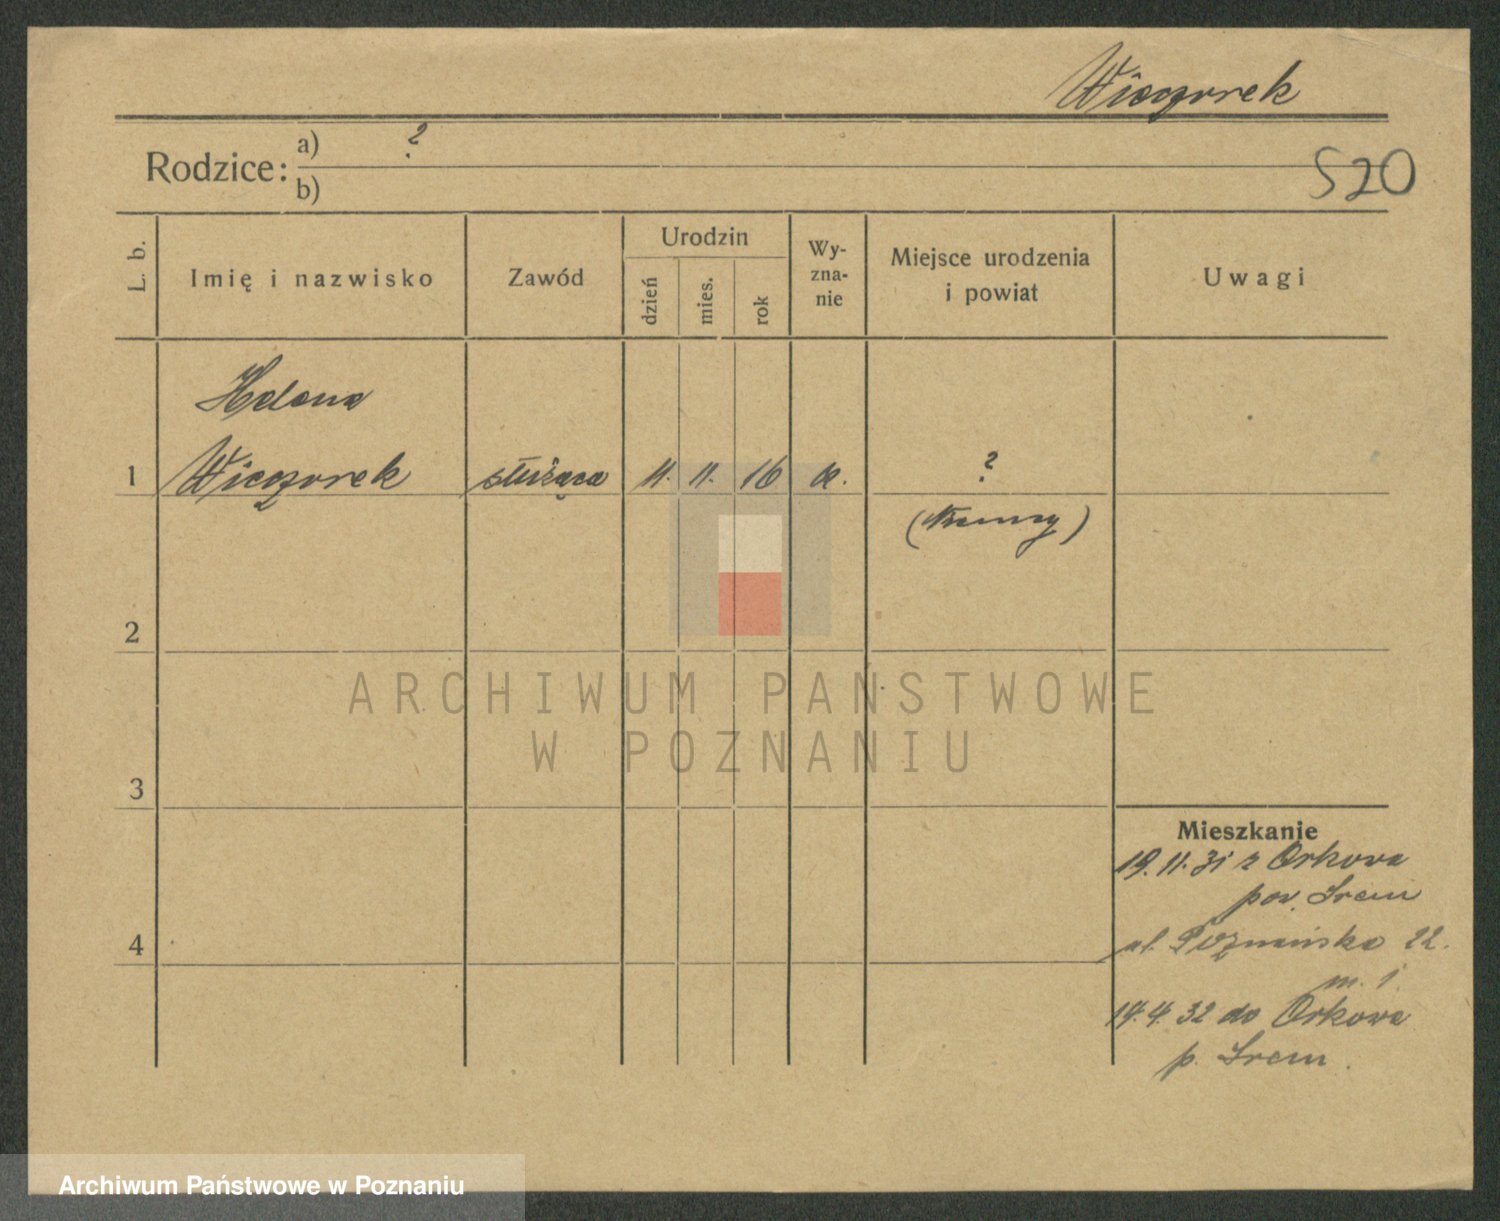 Wieczorek
Rodzice: a) ?
b)
520
L. b.
Imię i nazwisko
Zawód
Urodzin
dzień
mies.
rok
Wy-
zna-
nie
Miejsce urodzenia
i powiat
Uwagi
Helena
1 Wieczorek służąca 11. 11. 16 k. ?
2
3
4
Mieszkanie
19.11.31 z Orkowa
pow. Śrem
ul. Poznańska 22.
m. 1.
14.4.32 do Orkowa
p. Śrem.
ARCHIWUM PAŃSTWOWE
W POZNANIU
Archiwum Państwowe w Poznaniu